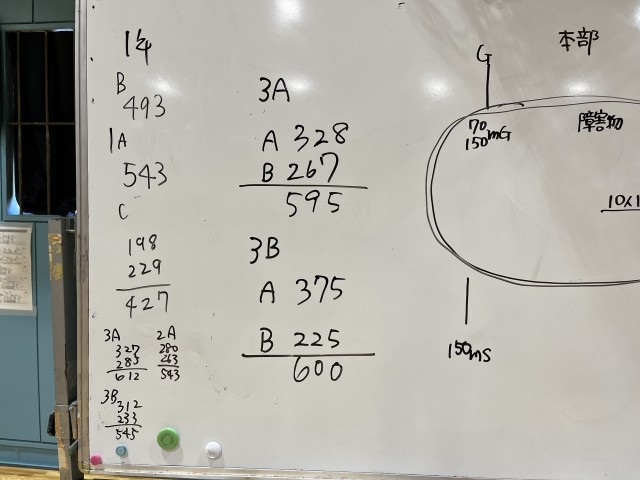 1年
B
493
1A
543
C
198
229
427
3A
327
285
612
2A
280
263
543
3B
312
233
545
3A
A 328
B 267
595
3B
A 375
B 225
600
本部
G
70
150mG
障害物
10x1
150mS